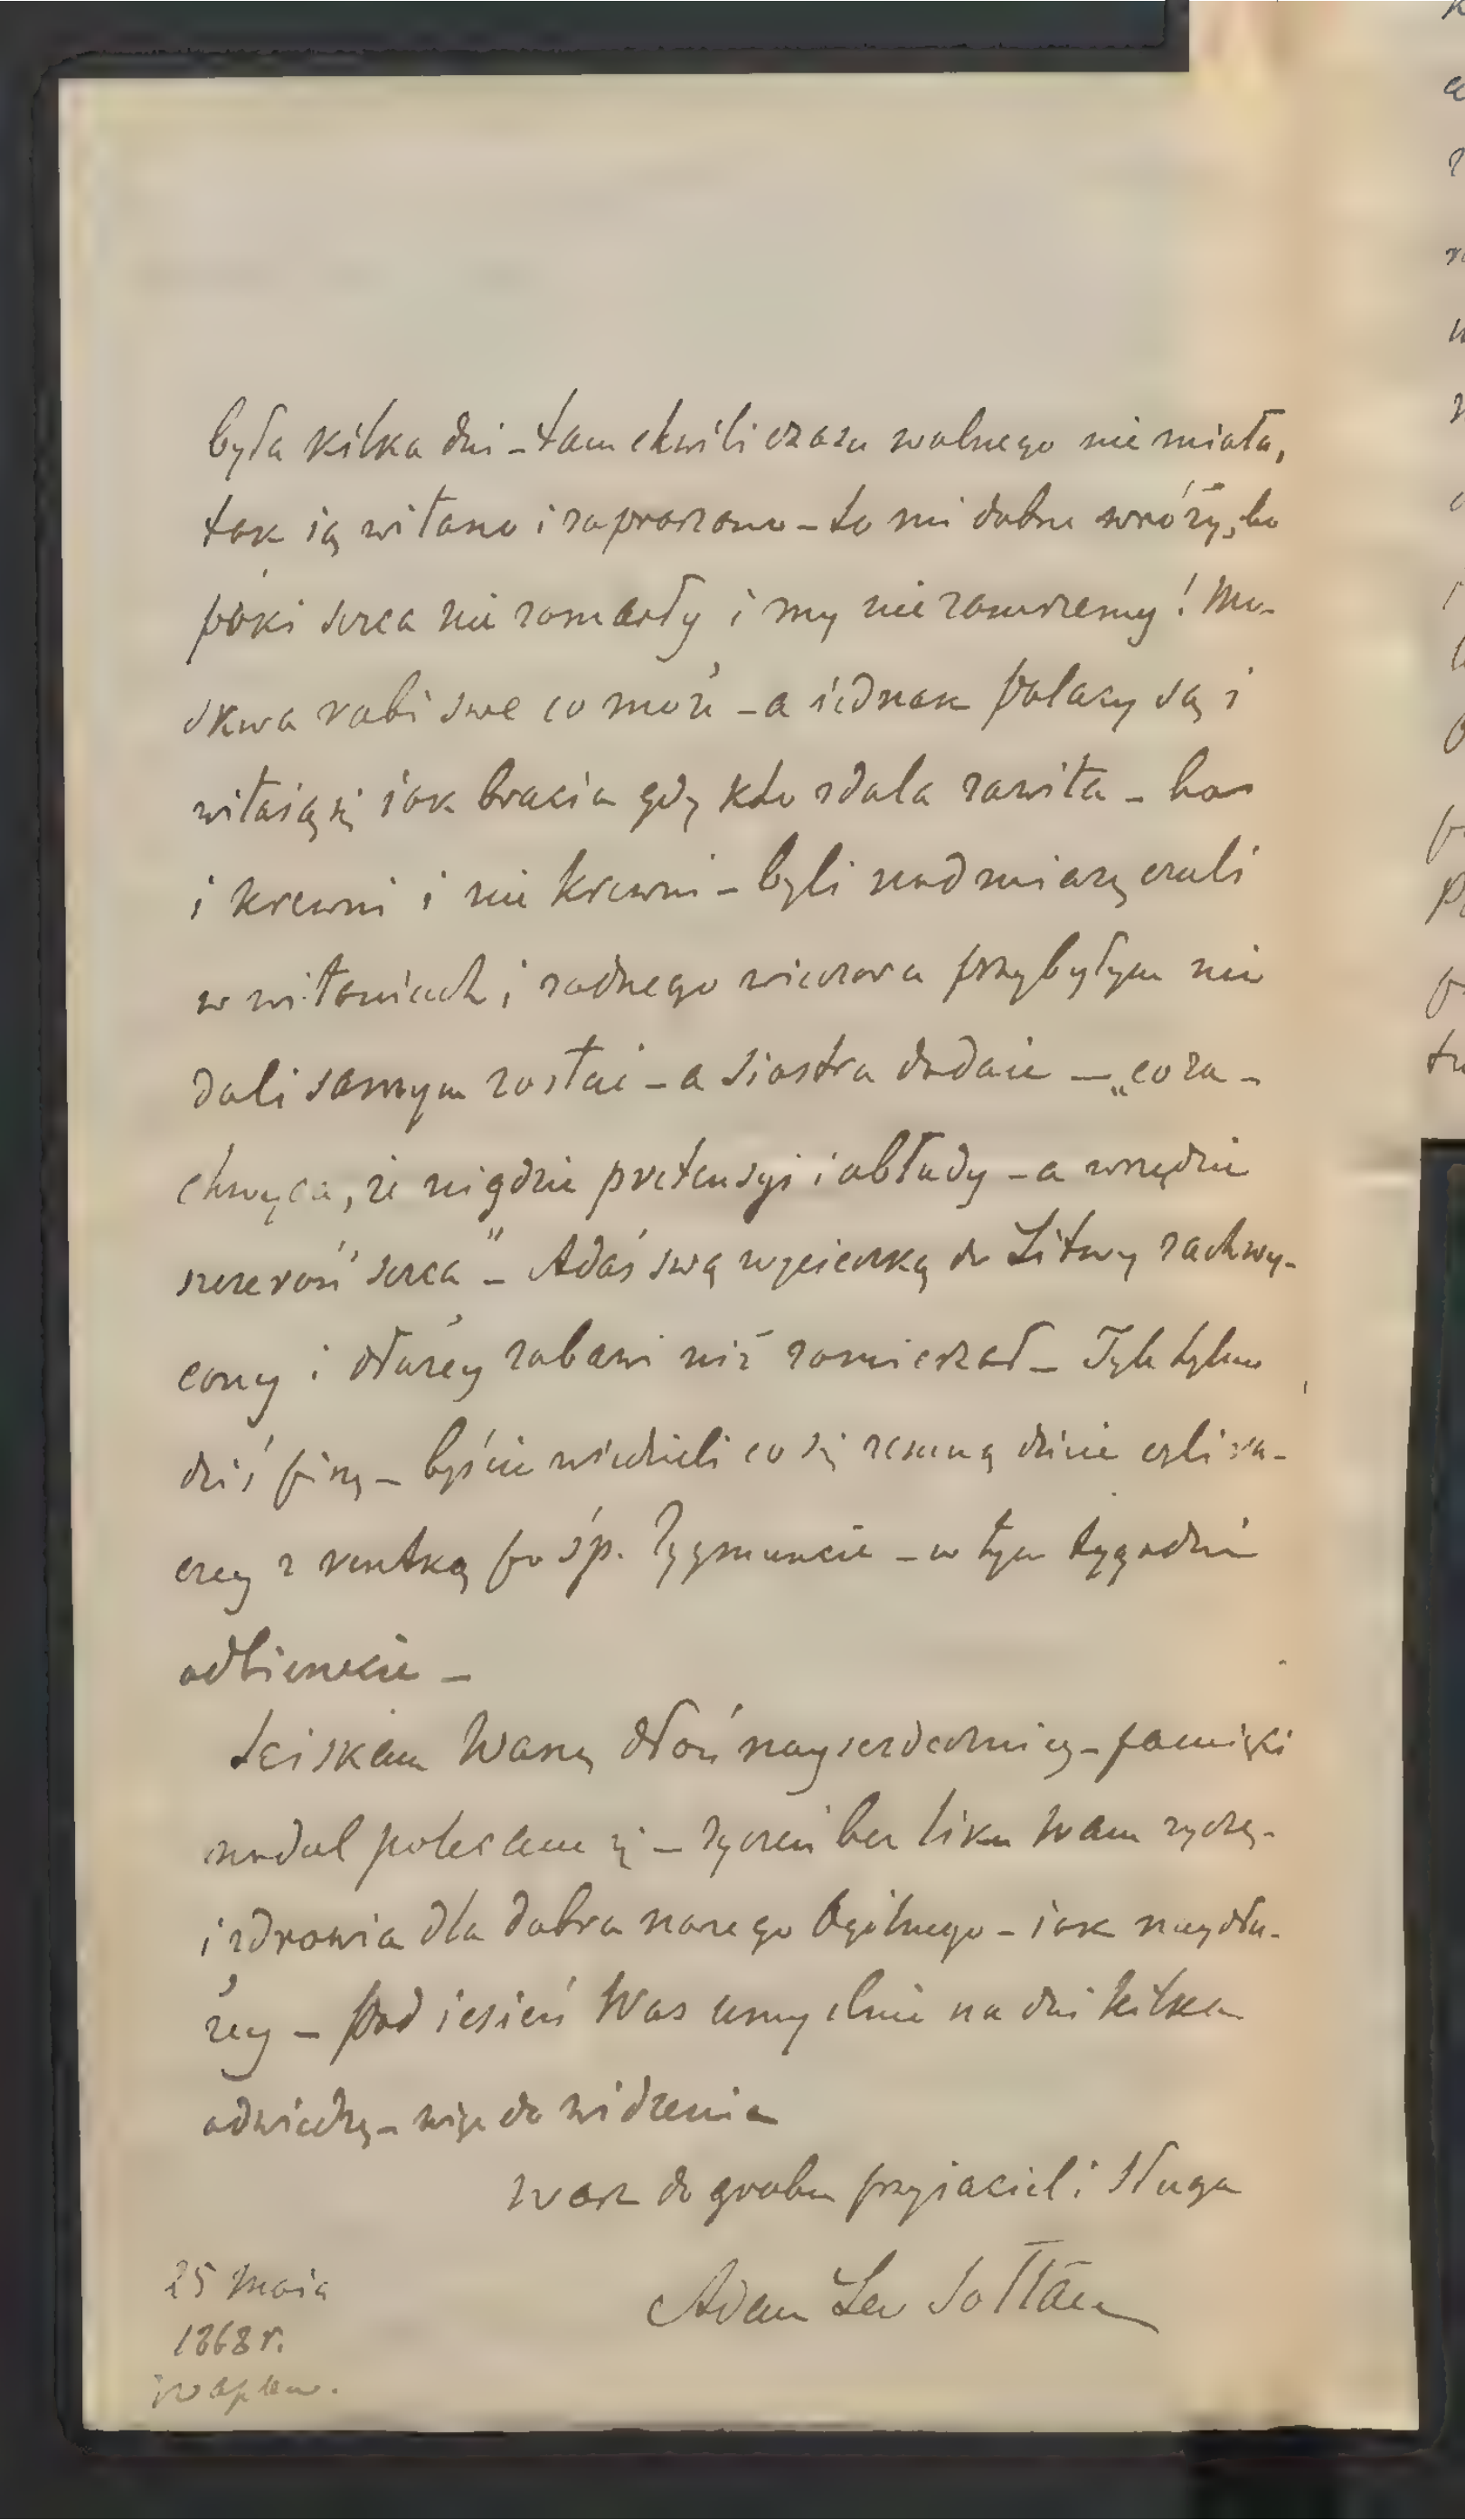 była kilka dni – tam chwili czasu wolnego nie miała,
tak ią witano i zapraszano – to mi dobrze wróży, bo
póki serca nie zamarły i my nie zamrzemy! Mo-
skwa robi swe co może – a iednak polacy są i
witaią się iak bracia gdy kto zdala zawita –
i krewni i nie krewni – byli nad miarę czuli
w witaniach i żadnego wieczora przybyłym nie
dali samym zostać – a siostra dodaie – „co za-
chwyca, że nigdzie pretensyi i obłudy – a wszędzie
szczerość serca" – Adaś swą wycieczką do Litwy zachwy-
cony i dłużey zabawi niż zamierzał – Tyle tylko
dziś piszę – byście wiedzieli co się ze mną dzieie czyli ra-
czey z rentką po śp. Zygmuncie – w tym tygodniu
odbierzecie –
Sciskam Waszą dłoń nayserdeczniey – pamięci
nadal polecam się – życzeń bez liku Wam życzę –
i zdrowia dla dobra naszego Ogólnego – iak naydłu-
żey – Pod iesień Was umyślnie na dni kilka
odwiedzę – więc do widzenia
Wasz do grobu przyiaciel i sługa
Adam Lew Sołtan
25 Maia
1868 r.